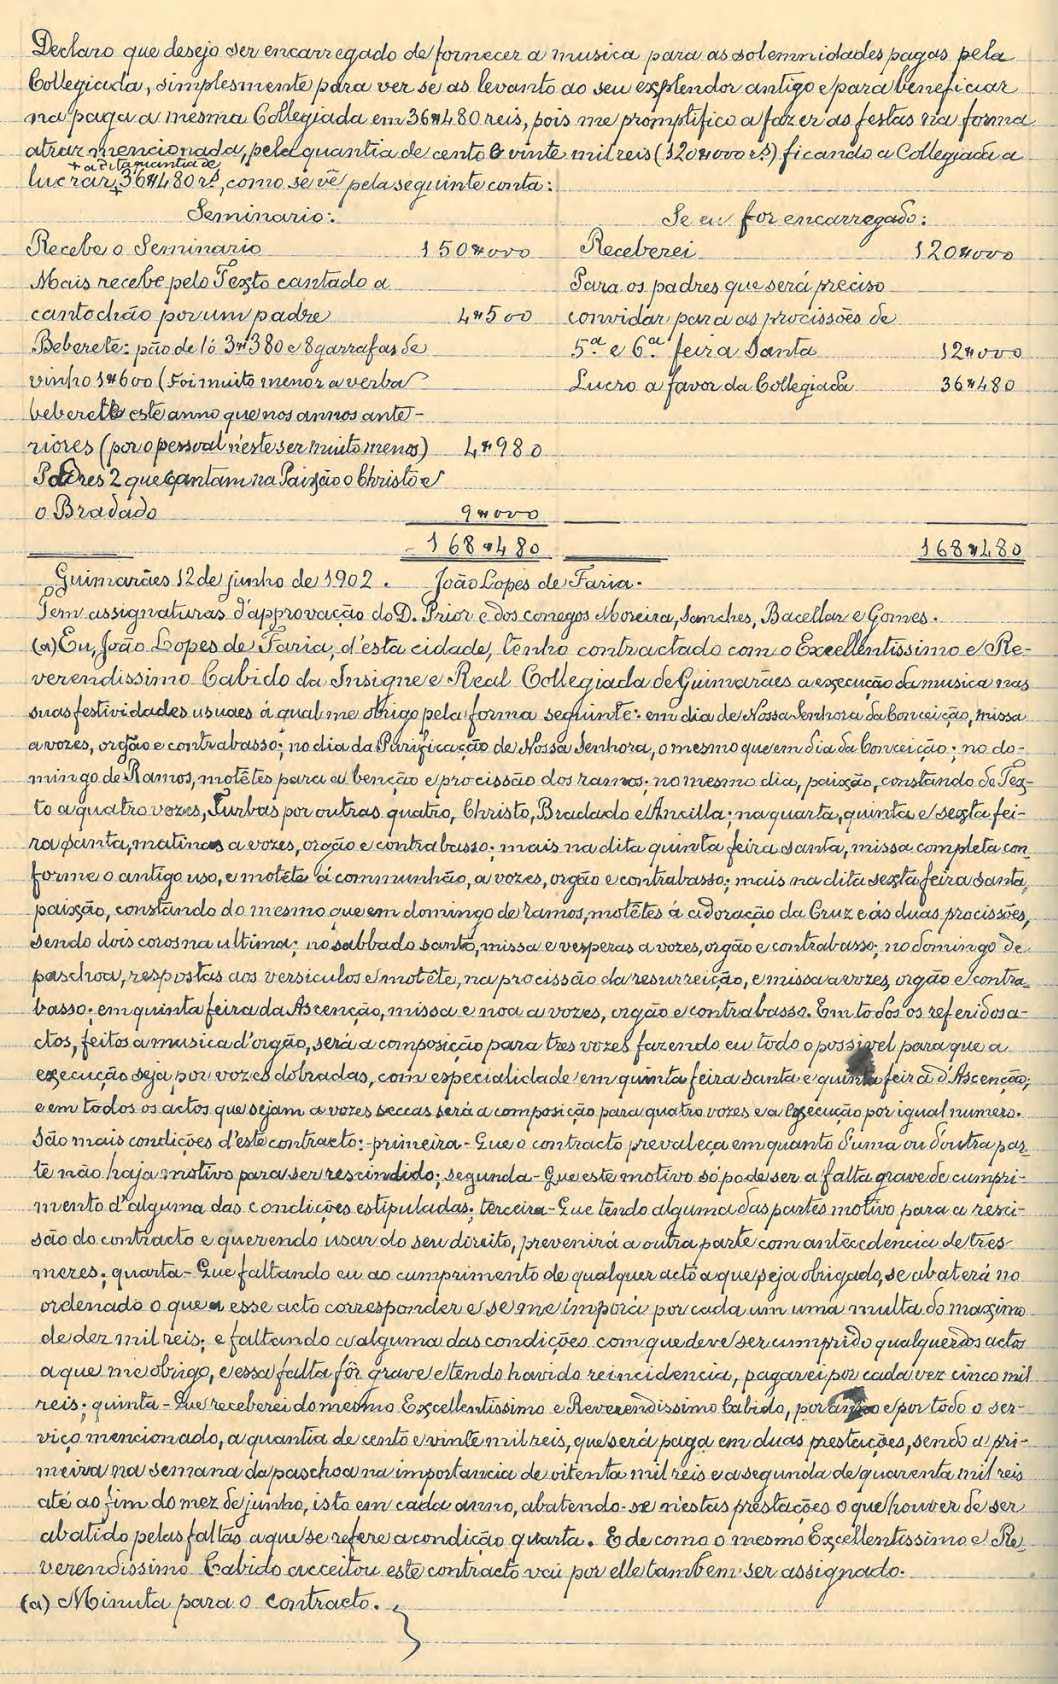 Declaro que desejo ser encarregado de fornecer a musica para as solemnidades pagas pela
Collegiada, simplesmente para ver se as levanto ao seu explendor antigo e para beneficiar
na paga a mesma Collegiada em 36$480 reis, pois me promptifico a fazer as festas na forma
atraz mencionada, pela quantia de cento e vinte mil reis (120$000 rs.) ficando a Collegiada a
+ a dita quantia de
lucrar + 36$480 rs, como se vê pela seguinte conta:
Seminario:
Recebe o Seminario 150$000
Mais recebe pelo Texto cantado a
cantochão por um padre 4$500
Beberete: pão de ló 3$380 e 8 garrafas de
vinho 1$600 (Foi muito menor a verba
beberete este anno que nos annos ante-
riores (por o pessoal n'este ser muito menos) 4$980
Padres 2 que cantam na Paixão o Christo e
o Bradado 9$000
168$480
Se eu for encarregado:
Receberei 120$000
Para os padres que será preciso
convidar para as procissões de
5.ª e 6.ª feira Santa 12$000
Lucro a favor da Collegiada 36$480
168$480
Guimarães 12 de junho de 1902. João Lopes de Faria.
Tem assignaturas d'approvação do D. Prior e dos conegos Moreira, Sanches, Bacellar e Gomes.
(a) Eu, João Lopes de Faria, d'esta cidade, tenho contractado com o Excellentissimo e Re-
verendissimo Cabido da Insigne e Real Collegiada de Guimarães a execução da musica nas
suas festividades usuaes á qual me obrigo pela forma seguinte: em dia de Nossa Senhora da Conceição, missa
a vozes, orgão e contrabasso; no dia da Purificação de Nossa Senhora, o mesmo que em dia da Conceição; no do-
mingo de Ramos, motêtes para a benção e procissão dos ramos; no mesmo dia, paixão, constando de Tex-
to a quatro vozes, Turbas por outras quatro, Christo, Bradado e Ancilla; na quarta, quinta e sexta fei-
ra santa, matinas a vozes, orgão e contrabasso; mais na dita quinta feira santa, missa completa con-
forme o antigo uso, e motête á communhão, a vozes, orgão e contrabasso; mais na dita sexta feira santa,
paixão, constando do mesmo que em domingo de ramos, motêtes á adoração da Cruz e ás duas procissões,
sendo dois coros na ultima; no sabbado santo, missa e vesperas a vozes, orgão e contrabasso; no domingo de
paschoa, respostas aos versiculos e motête, na procissão da resurreição, e missa a vozes, orgão e contra-
basso; em quinta feira da Ascenção, missa e noa a vozes, orgão e contrabasso. Em todos os referidos a-
ctos, feitos a musica d'orgão, será a composição para tres vozes fazendo eu todo o possivel para que a
execução seja por vozes dobradas, com especialidade em quinta feira santa e quinta feira d'Ascenção;
e em todos os actos que sejam a vozes seccas será a composição para quatro vozes e a execução por igual numero.
São mais condições d'este contracto: - primeira - Que o contracto prevaleça em quanto d'uma ou d'outra par-
te não haja motivo para ser rescindido; segunda - Que este motivo só pode ser a falta grave de cumpri-
mento d'alguma das condições estipuladas; terceira - Que tendo alguma das partes motivo para a resci-
são do contracto e querendo usar do seu direito, prevenirá a outra parte com antecedencia de tres
mezes; quarta - Que faltando eu ao cumprimento de qualquer acto a que seja obrigado, se abaterá no
ordenado o que a esse acto corresponder e se me imporá por cada um uma multa do maximo
de dez mil reis; e faltando a alguma das condições com que deve ser cumprido qualquer dos actos
a que me obrigo, e essa falta fôr grave e tendo havido reincidencia, pagarei por cada vez cinco mil
reis; quinta - Que receberei do mesmo Excellentissimo e Reverendissimo Cabido, por anno e por todo o ser-
viço mencionado, a quantia de cento e vinte mil reis, que será paga em duas prestações, sendo a pri-
meira na semana da paschoa na importancia de oitenta mil reis e a segunda de quarenta mil reis
até ao fim do mez de junho, isto em cada anno, abatendo-se n'estas prestações o que houver de ser
abatido pelas faltas a que se refere a condição quarta. E de como o mesmo Excellentissimo e Re-
verendissimo Cabido acceitou este contracto vai por elle tambem ser assignado.
(a) Minuta para o contracto.